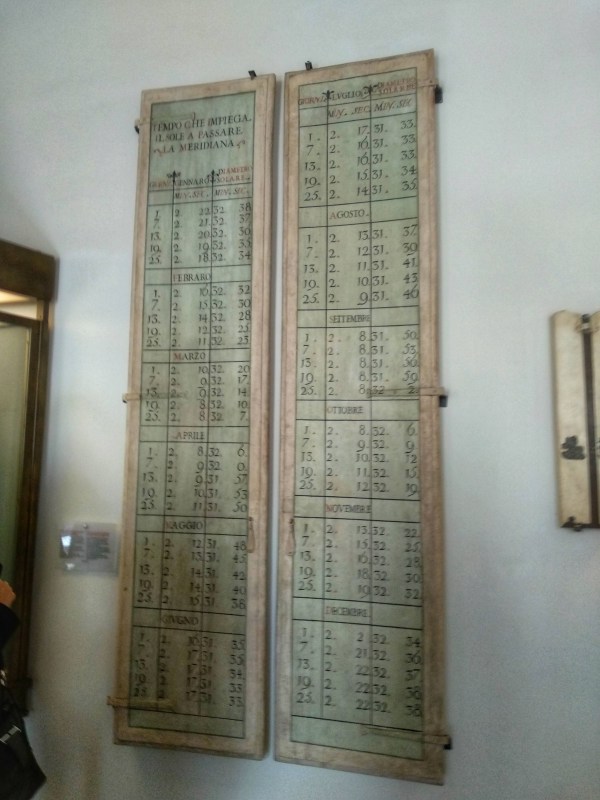 TEMPO CHE IMPIEGA
IL SOLE A PASSARE
LA MERIDIANA.
GIORNI GENNARO DIAMETRO
SOLARE.
MIN. SEC. MIN. SEC.
1. 2. 22. 32. 38
7. 2. 21. 32. 37
13. 2. 20. 32. 36
19. 2. 19. 32. 35
25. 2. 18. 32. 34
FEBRARO
1. 2. 16. 32. 32
7. 2. 15. 32. 30
13. 2. 14. 32. 28
19. 2. 12. 32. 25
25. 2. 11. 32. 23
MARZO
1. 2. 10. 32. 20
7. 2. 9. 32. 17
13. 2. 9. 32. 14
19. 2. 8. 32. 10
25. 2. 8. 32. 7.
APRILE
1. 2. 8. 32. 6.
7. 2. 9. 32. 0.
13. 2. 9. 31. 57
19. 2. 10. 31. 53
25. 2. 11. 31. 50
MAGGIO
1. 2. 12. 31. 48
7. 2. 13. 31. 45
13. 2. 14. 31. 42
19. 2. 14. 31. 40
25. 2. 15. 31. 38
GIUGNO
1. 2. 16. 31. 35
7. 2. 17. 31. 35
13. 2. 17. 31. 34
19. 2. 17. 31. 33
25. 2. 17. 31. 33
GIORNI LUGLIO DIAMETRO
SOLARE
MIN. SEC. MIN. SEC.
1. 2. 17. 31. 33
7. 2. 16. 31. 33
13. 2. 16. 31. 33
19. 2. 15. 31. 34
25. 2. 14. 31. 35
AGOSTO.
1. 2. 13. 31. 37
7. 2. 12. 31. 30
13. 2. 11. 31. 41
19. 2. 10. 31. 43
25. 2. 9. 31. 46
SETTEMBRE
1. 2. 8. 31. 50
7. 2. 8. 31. 53
13. 2. 8. 31. 56
19. 2. 8. 31. 59
25. 2. 8. 32 2.
OTTOBRE
1. 2. 8. 32. 6.
7. 2. 9. 32. 9.
13. 2. 10. 32. 12
19. 2. 11. 32. 15
25. 2. 12. 32. 19
NOVEMBRE
1. 2. 13. 32. 22
7. 2. 15. 32. 25
13. 2. 16. 32. 28
19. 2. 18. 32. 30
25. 2. 19. 32. 32
DECEMBRE
1. 2. 2 32. 34
7. 2. 21. 32. 36
13. 2. 22. 32. 37
19. 2. 22. 32. 38
25. 2. 22. 32. 38